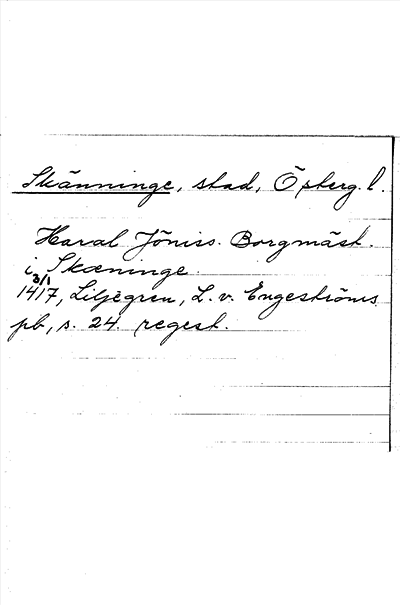 Skänninge, stad, Östberg. l.
Haral Jöniss. Borgmäst.
i Skæninge.
3/1
1417, Liljegren, L. v. Engeströms
pb, s. 24. regest.